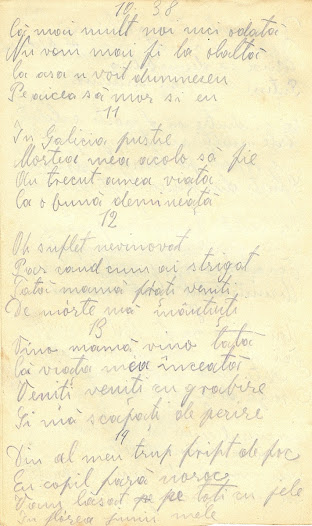 10. 38
Că mai mult noi nici odată
Nu vom mai fi la olaltă
Ca asa u voit dumnezeu
Pe aicea să mor si eu
11
In Galizia pustie
Mortea mea acolo să fie
Au trecut amea viata
Ca o bună demineátă
12
Oh suflet nevinovat
Par cand cum ai strigat
Tată mamă frati veniti
De mórte mă mântuiti
13
Vino mamă vino tată
Ca viata mea înceată
Veniti veniti cu grabire
Si mă scapati de perire
19
Din al meu trup fript de foc
Eu copil fară noroc
Vam lăsat pe toti cu jele
In flórea junii mele